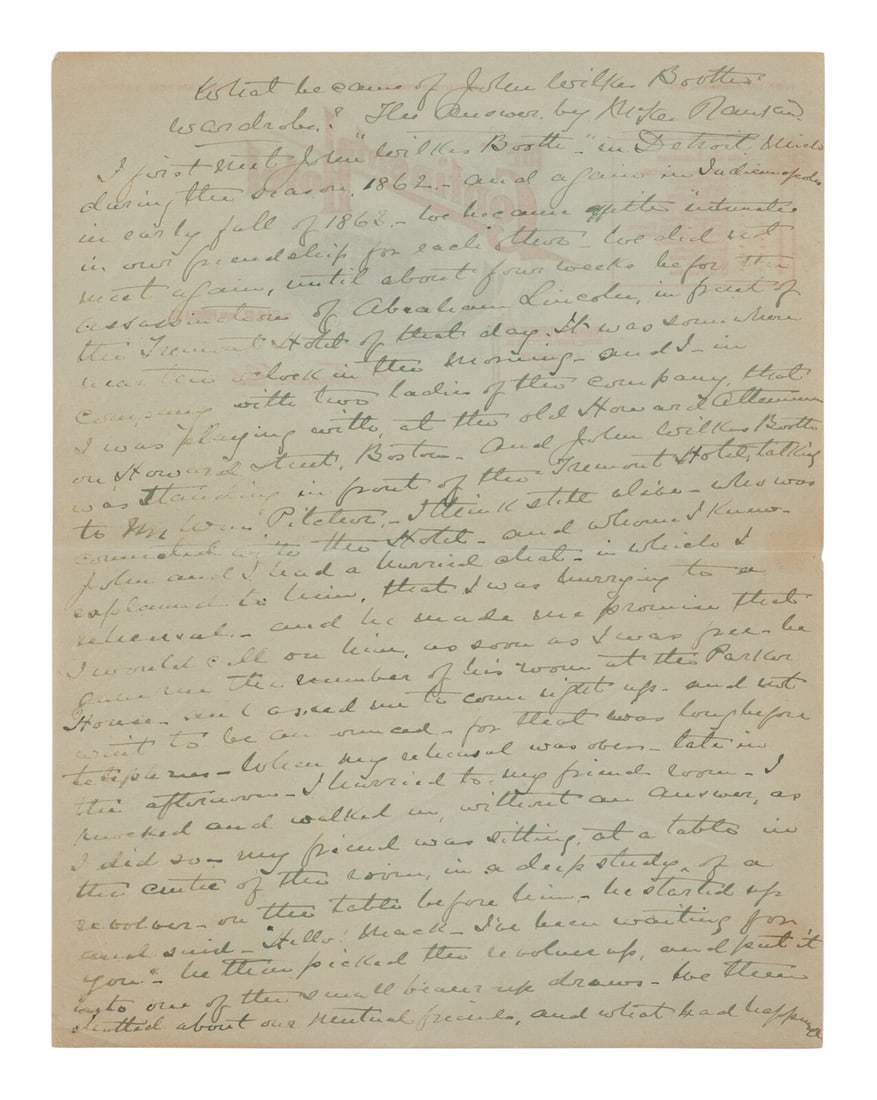 What became of John Wilkes Booths
wardrobe? The Answer. by McKee Rankin.
I first met John "Wilkes Booth" - in Detroit, Mich
during the season, 1862. - and again in Indianapolis
in early fall of 1863. - We became quite intimate
in our friendship for each other. We did not
meet again, until about four weeks before the
assassination of Abraham Lincoln, in front of
the Tremont Hotel of that day. It was somewhere
near ten oclock in the morning - and I - in
company with two ladies of the company, that
I was playing with, at the old Howard Atheneum
on Howard Street, Boston - And John Wilkes Booth
was standing in front of the Tremont Hotel, talking
to Mr Wm Pitcher, - I think still alive - who was
connected with the Hotel - and whom I knew.
John and I had a hurried chat - in which I
explained to him, that I was hurrying to a
rehersal. - and he made me promise that
I would call on him, as soon as I was free - he
gave me the number of his room at the Parker
House - and asked me to come right up - and not
wait to be announced - for that was long before
telephones - When my rehersal was over - late in
the afternoon - I hurried to my friends room - I
knocked and walked in, without an answer, as
I did so - my friend was sitting, at a table in
the centre of the room, in a deep study, of a
revolver - on the table before him. - he started up
and said - "Hello! Mack - I've been waiting for
you" - he then picked the revolver up, and put it
into one of the small beaureup draws - We then
chatted about our mutual friends, and what had happened